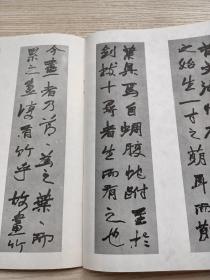 之始生一寸之萌耳而節
葉具焉自蜩腹蛇蚹至於
劍拔十尋者生而有之也
今畫者乃節々為之葉々而
累之豈復有竹乎故畫竹